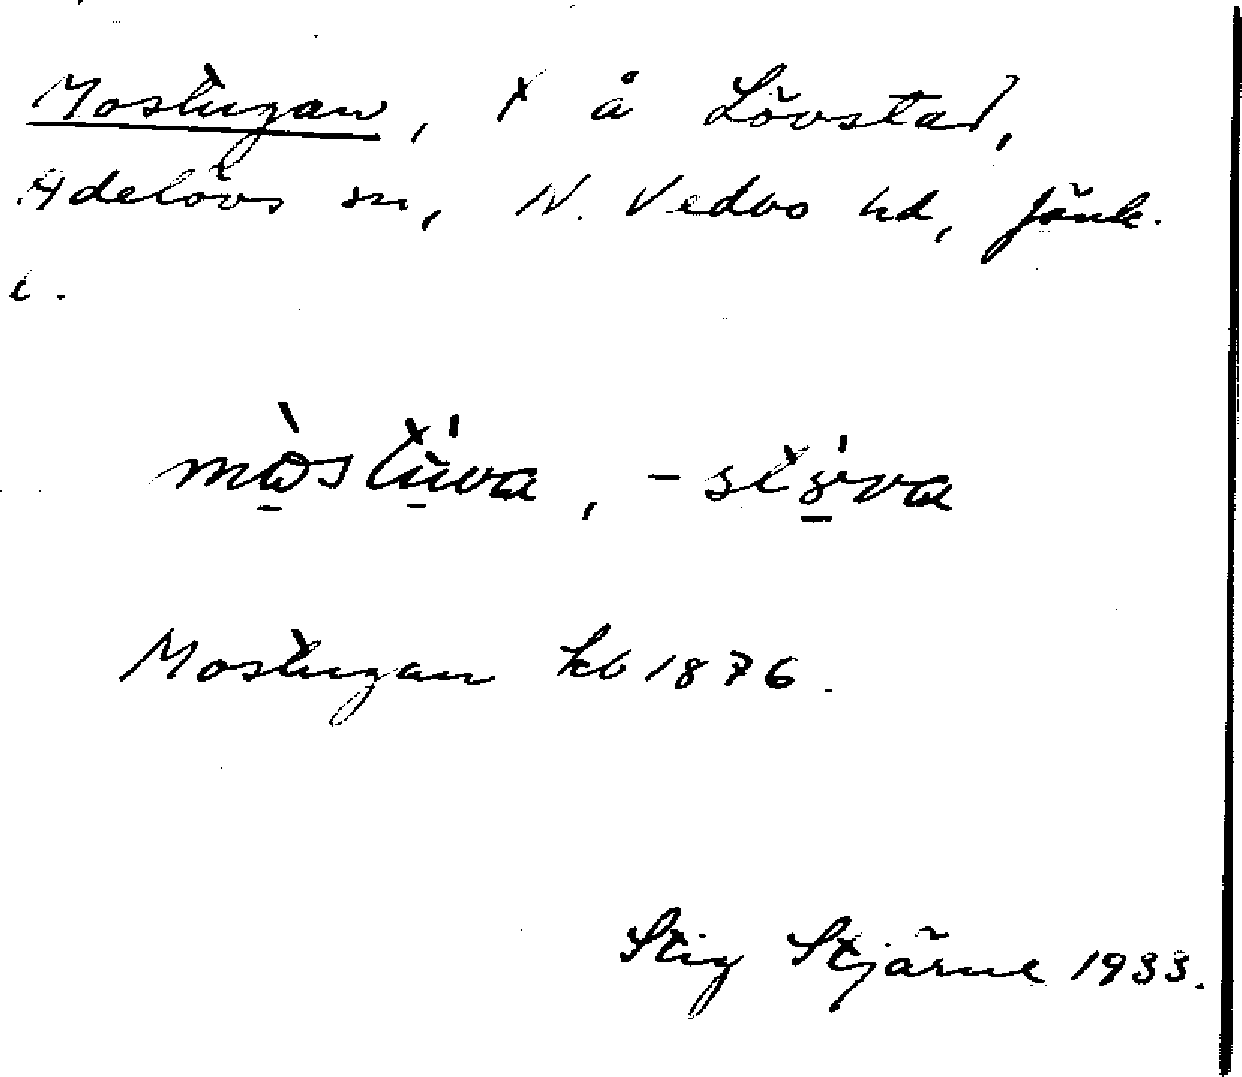 Mostugan, x å Lövstad,
Adelövs sn, N. Vedbo hd, Jönk.
l.
mòstúva, -stúva
Mostugan kb 1876.
Stig Stjärne 1933.